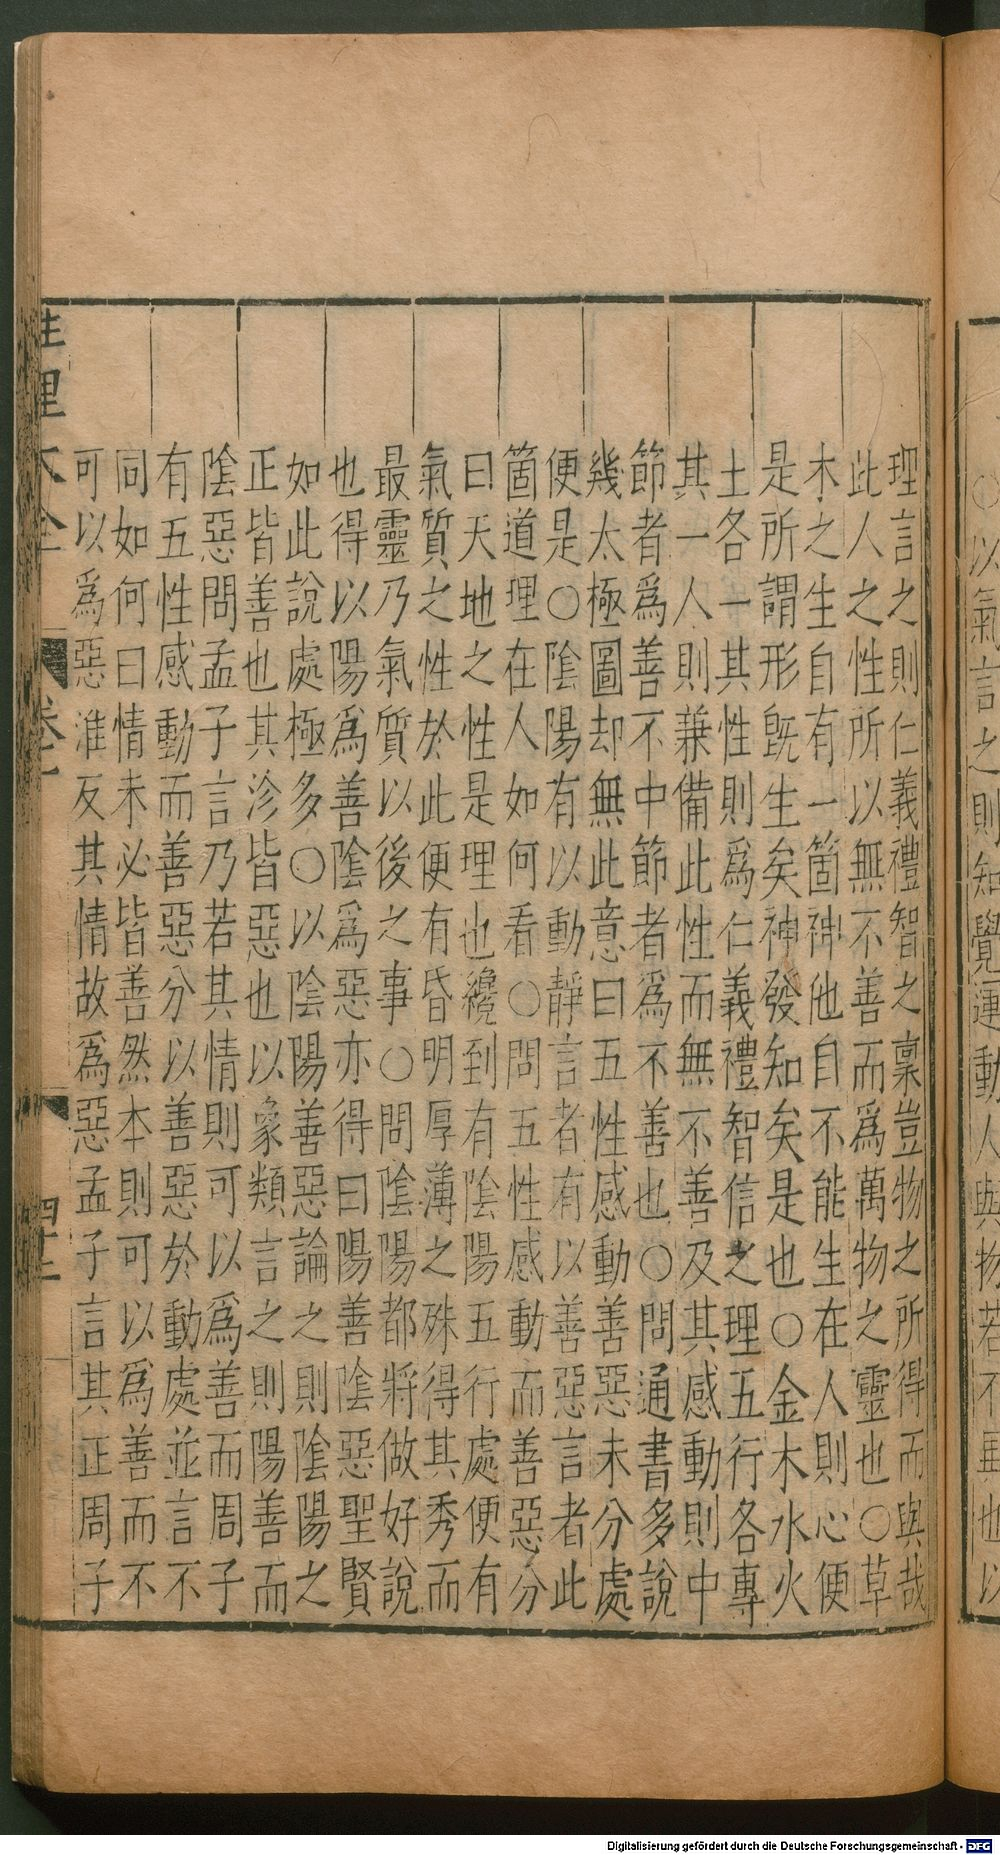 ○以氣言之則知覺運動人與物若不異也以
理言之則仁義禮智之稟豈物之所得而與哉
此人之性所以無不善而爲萬物之靈也○草
木之生自有一箇神他自不能生在人則心便
是所謂形旣生矣神發知矣是也○金木水火
土各一其性則爲仁義禮智信之理五行各專
其一人則兼備此性而無不善及其感動則中
節者爲善不中節者爲不善也○問通書多說
幾太極圖却無此意曰五性感動善惡未分處
便是○陰陽有以動靜言者有以善惡言者此
箇道理在人如何看○問五性感動而善惡分
曰天地之性是理也纔到有陰陽五行處便有
氣質之性於此便有昏明厚薄之殊得其秀而
最靈乃氣質以後之事○問陰陽都將做好說
也得以陽爲善陰爲惡亦得曰陽善陰惡聖賢
如此說處極多○以陰陽善惡論之則陰陽之
正皆善也其沴皆惡也以象類言之則陽善而
陰惡問孟子言乃若其情則可以爲善而周子
有五性感動而善惡分以善惡於動處並言不
同如何曰情未必皆善然本則可以爲善而不
可以爲惡淮反其情故爲惡孟子言其正周子
性理大全 卷一 四十二
Digitalisierung gefördert durch die Deutsche Forschungsgemeinschaft - DFG